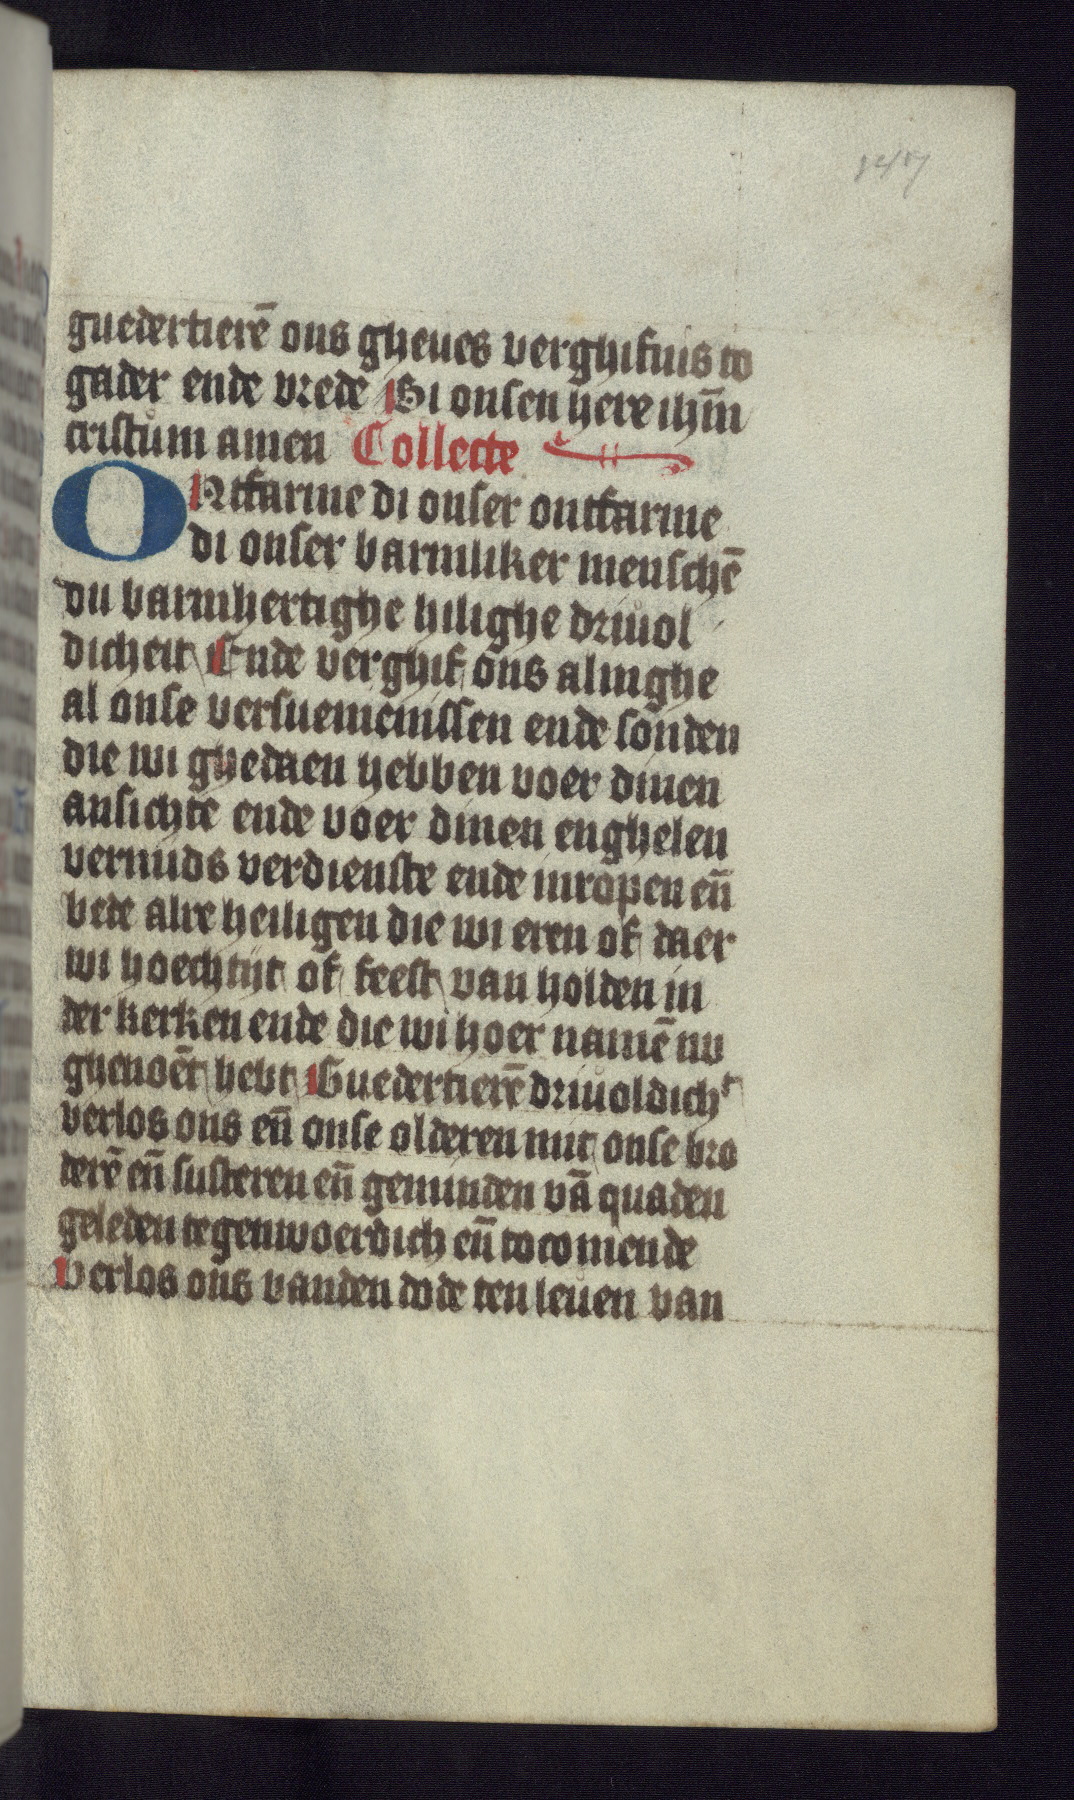 guedertierē ons gheues verghifnis to
gader ende vrede Bi onsen here ihm̄
cristum amen Collecte
ONtfarme di onser ontfarme
di onser barmliker menschē
du barmhertighe hilighe driuol
dicheit Ende verghif ons alinghe
al onse versuemenissen ende sonden
die wi ghedaen hebben voer dinen
ansichte ende voer dinen enghelen
vermids verdienste ende inropen en̄
bede alre heiligen die wi eren of daer
wi hoechtijt of feest van holden in
der kerken ende die wi hoer namē nv
ghenoēt hebt Guedertierē driuoldichᵗ
verlos ons en̄ onse olderen mit onse bro
derē en̄ susteren en̄ geminden vā quaden
geleden tegenwoerdich en̄ tocomende
Verlos ons vanden dode ten leuen van